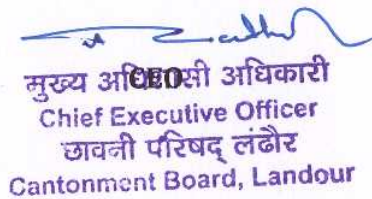 मुख्य अधिशासी अधिकारी
CEO
Chief Executive Officer
छावनी परिषद् लंढौर
Cantonment Board, Landour